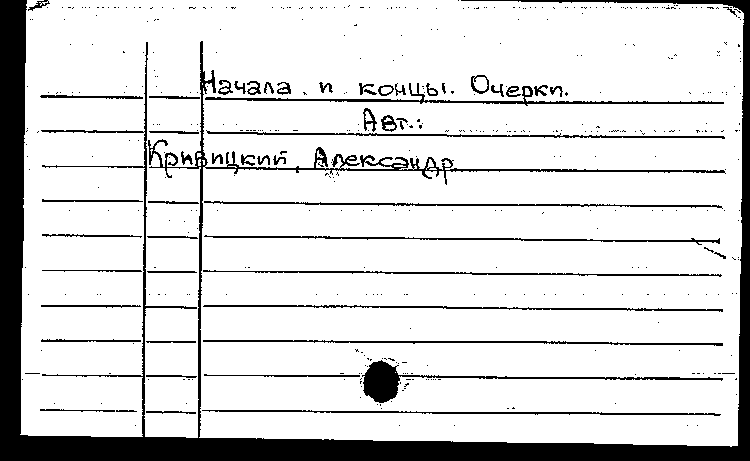 Начала и концы. Очерки.
Авт.:
Кривицкий, Александр